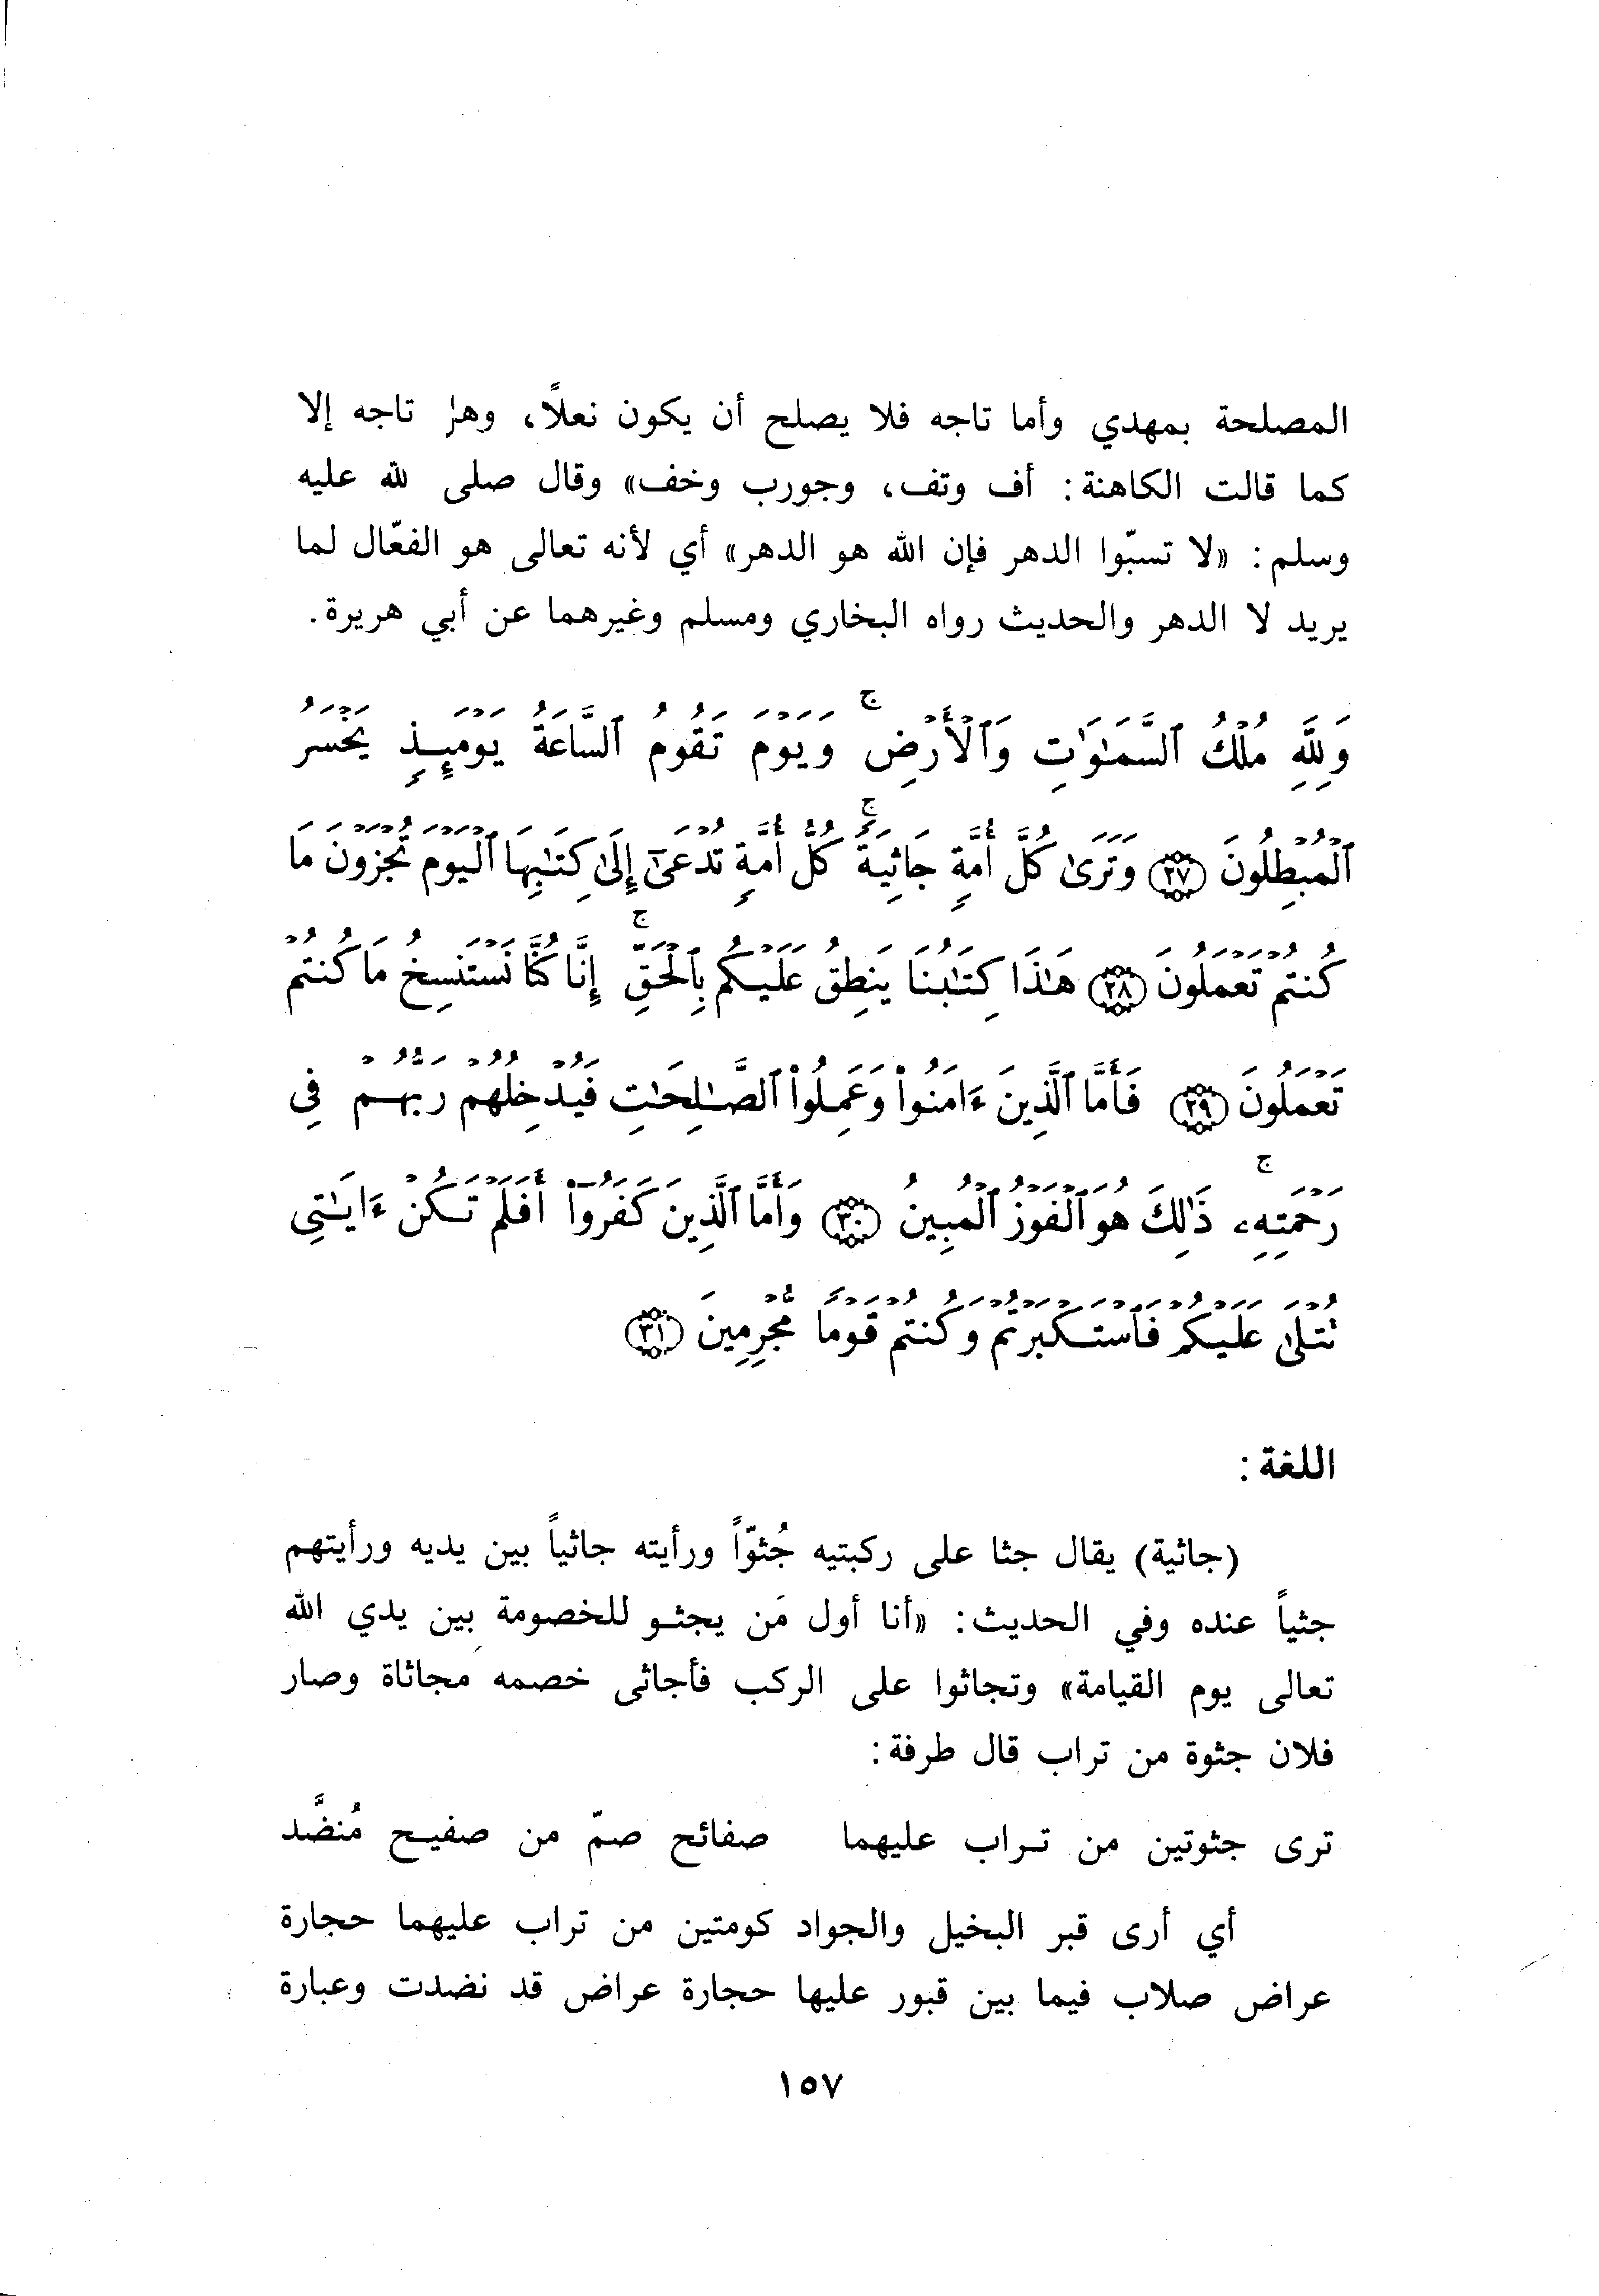 المصلحة بمهدي وأما تاجه فلا يصلح أن يكون نعلاً، وهل تاجه إلا
كما قالت الكاهنة: أف وتف، وجورب وخف» وقال صلى لله عليه
وسلم: «لا تسبّوا الدهر فإن الله هو الدهر» أي لأنه تعالى هو الفعّال لما
يريد لا الدهر والحديث رواه البخاري ومسلم وغيرهما عن أبي هريرة.
وَلِلَّهِ مُلْكُ ٱلسَّمَـٰوَٰتِ وَٱلْأَرْضِ ۚ وَيَوْمَ تَقُومُ ٱلسَّاعَةُ يَوْمَئِذٍ يَخْسَرُ
ٱلْمُبْطِلُونَ ﴿٢٧﴾ وَتَرَىٰ كُلَّ أُمَّةٍ جَاثِيَةً ۚ كُلُّ أُمَّةٍ تُدْعَىٰٓ إِلَىٰ كِتَـٰبِهَا ٱلْيَوْمَ تُجْزَوْنَ مَا
كُنتُمْ تَعْمَلُونَ ﴿٢٨﴾ هَـٰذَا كِتَـٰبُنَا يَنطِقُ عَلَيْكُم بِٱلْحَقِّ ۚ إِنَّا كُنَّا نَسْتَنسِخُ مَا كُنتُمْ
تَعْمَلُونَ ﴿٢٩﴾ فَأَمَّا ٱلَّذِينَ ءَامَنُوا۟ وَعَمِلُوا۟ ٱلصَّـٰلِحَـٰتِ فَيُدْخِلُهُمْ رَبُّهُمْ فِى
رَحْمَتِهِۦ ۚ ذَٰلِكَ هُوَ ٱلْفَوْزُ ٱلْمُبِينُ ﴿٣٠﴾ وَأَمَّا ٱلَّذِينَ كَفَرُوٓا۟ أَفَلَمْ تَكُنْ ءَايَـٰتِى
تُتْلَىٰ عَلَيْكُمْ فَٱسْتَكْبَرْتُمْ وَكُنتُمْ قَوْمًا مُّجْرِمِينَ ﴿٣١﴾
اللغة:
(جاثية) يقال جثا على ركبتيه جُثوّاً ورأيته جاثياً بين يديه ورأيتهم
جثياً عنده وفي الحديث: «أنا أول مَن يجثو للخصومة بين يدي الله
تعالى يوم القيامة» وتجاثوا على الركب فأجاثى خصمه مجاثاة وصار
فلان جثوة من تراب قال طرفة:
ترى جثوتين من تراب عليهما صفائح صمّ من صفيح مُنضَّد
أي أرى قبر البخيل والجواد كومتين من تراب عليهما حجارة
عراض صلاب فيما بين قبور عليها حجارة عراض قد نضدت وعبارة
١٥٧